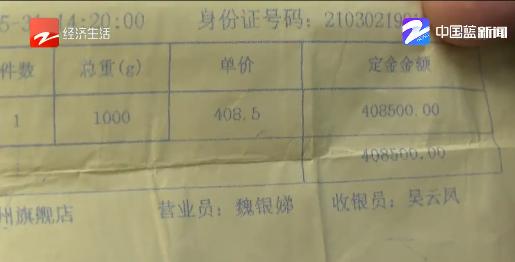 5-31 14:20:00 身份证号码：210302199
经济生活
中国蓝新闻
件数 总重(g) 单价 定金金额
1 1000 408.5 408500.00
408500.00
州旗舰店 营业员：魏银娣 收银员：吴云凤